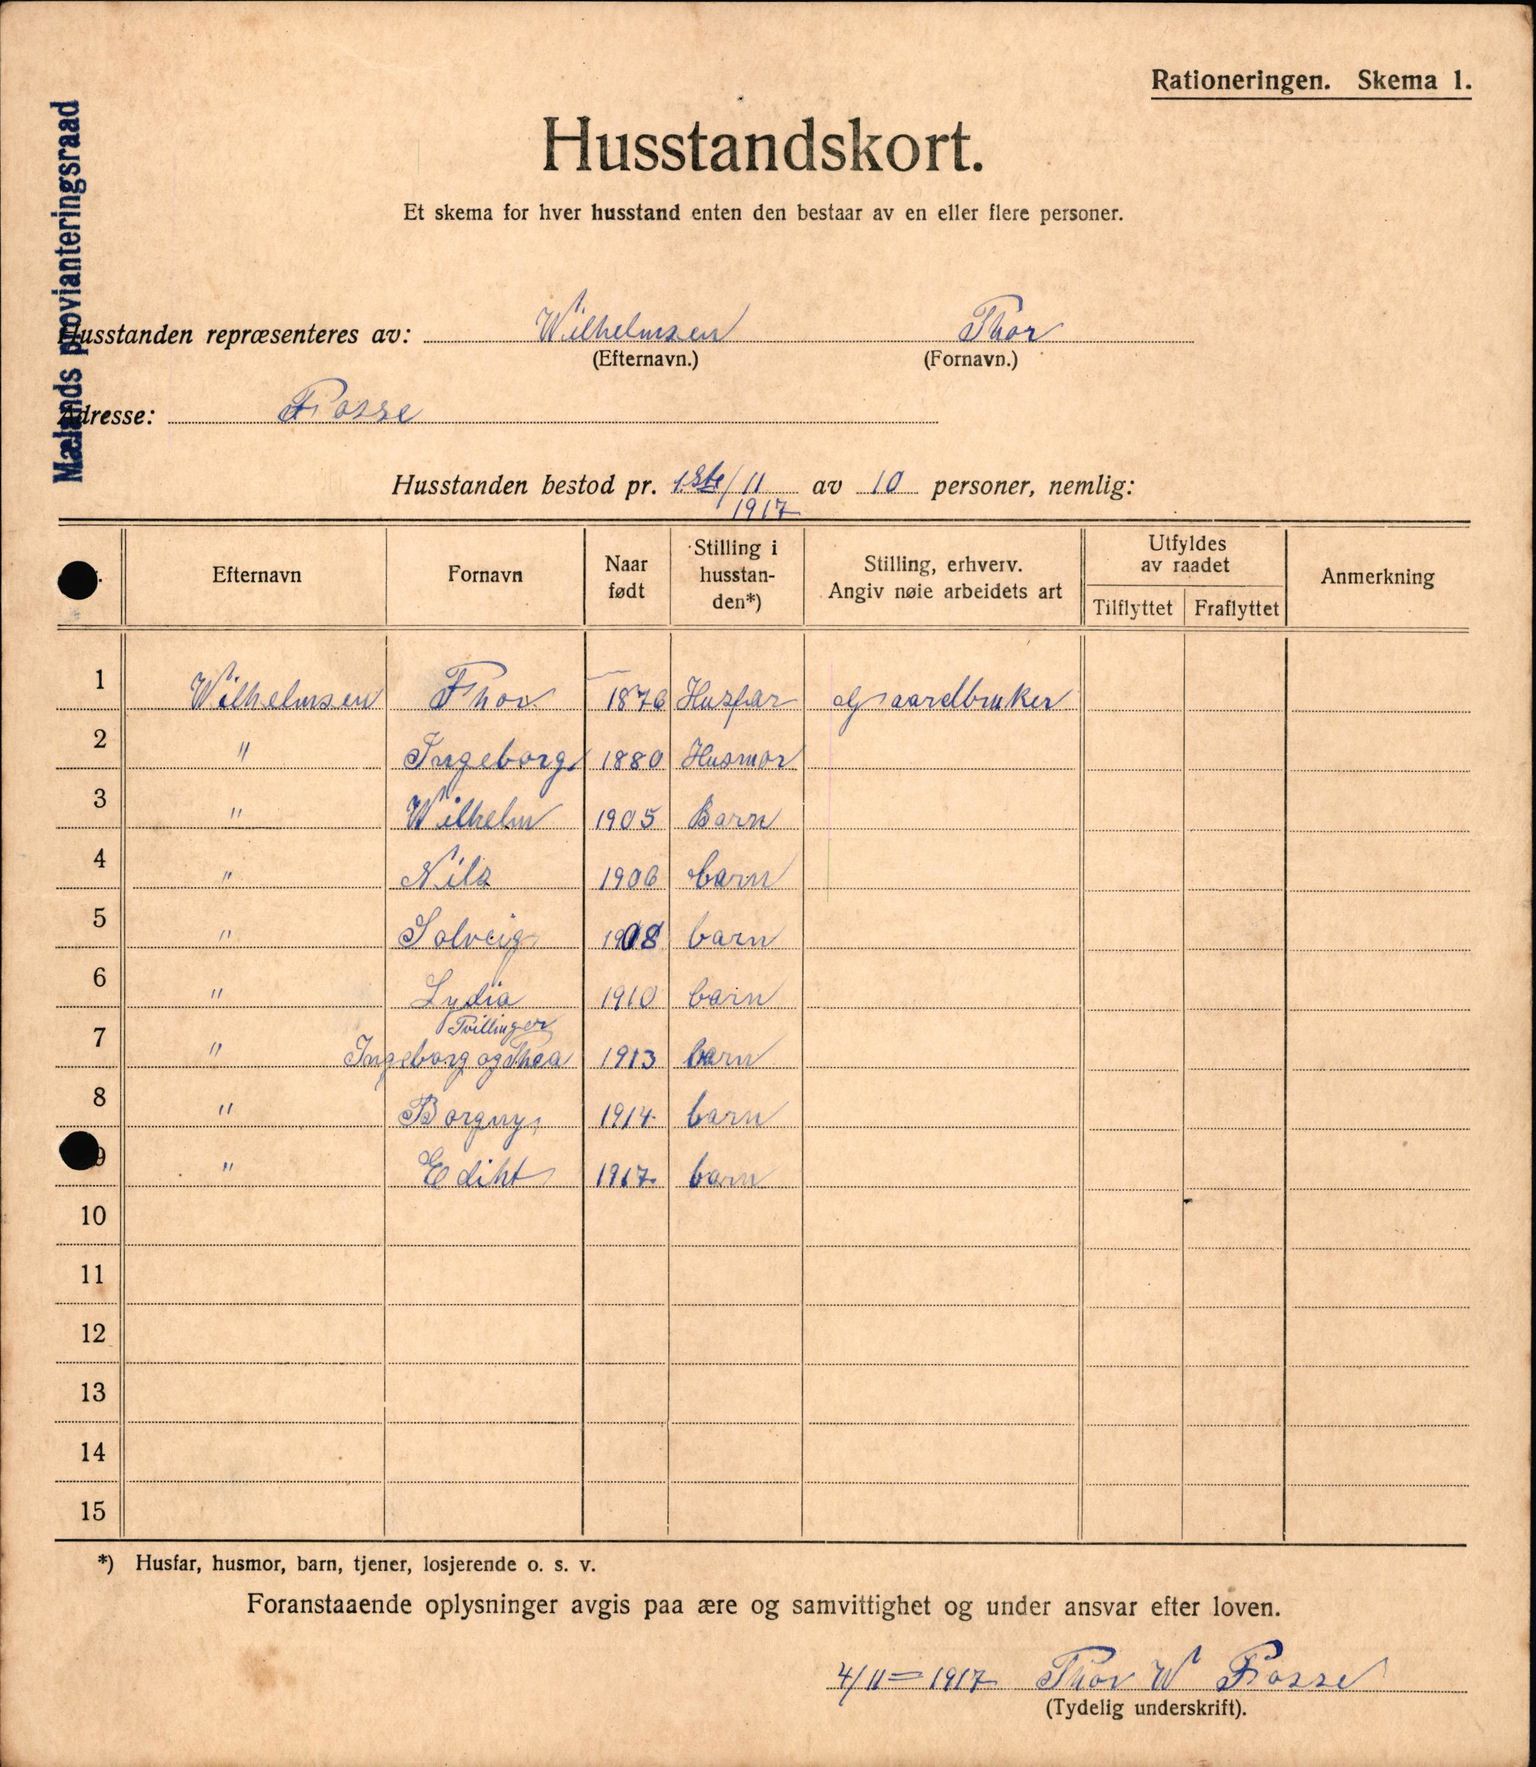 Rationeringen. Skema 1.
Mælands provianteringsraad
Husstandskort.
Et skema for hver husstand enten den bestaar av en eller flere personer.
Husstanden repræsenteres av: Wilhelmsen Thor
(Efternavn.) (Fornavn.)
Adresse: Fosse
Husstanden bestod pr. 1ste/11 1917 av 10 personer, nemlig:
Efternavn Fornavn Naar født Stilling i husstan-den*) Stilling, erhverv. Angiv nøie arbeidets art Utfyldes av raadet Tilflyttet Fraflyttet Anmerkning
1 Wilhelmsen Thor 1876 Husfar Gaardbruker
2 " Ingeborg 1880 Husmor
3 " Wilhelm 1905 Barn
4 " Nils 1906 barn
5 " Solveig 1908 barn
6 " Lydia 1910 barn
Tvillinger
7 " Ingeborg og Thea 1913 barn
8 " Borgny 1914 barn
9 " Ediht 1917 barn
10
11
12
13
14
15
*) Husfar, husmor, barn, tjener, losjerende o. s. v.
Foranstaaende oplysninger avgis paa ære og samvittighet og under ansvar efter loven.
4/11=1917 Thor W Fosse
(Tydelig underskrift).